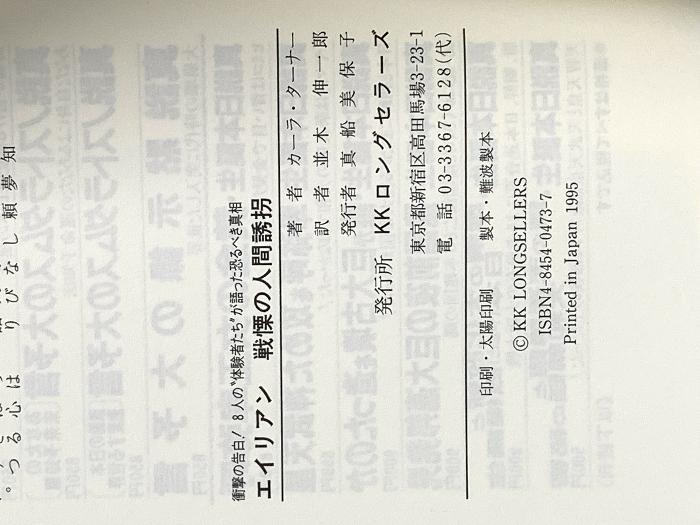 衝撃の告白! 8人の〝体験者たち〟が語った恐るべき真相
エイリアン 戦慄の人間誘拐
著者 カーラ・ターナー
訳者 並木伸一郎
発行者 真船美保子
発行所 KKロングセラーズ
東京都新宿区高田馬場3-23-1
電話03-3367-6128(代)
印刷・太陽印刷 製本・難波製本
© KK LONGSELLERS
ISBN4-8454-0473-7
Printed in Japan 1995